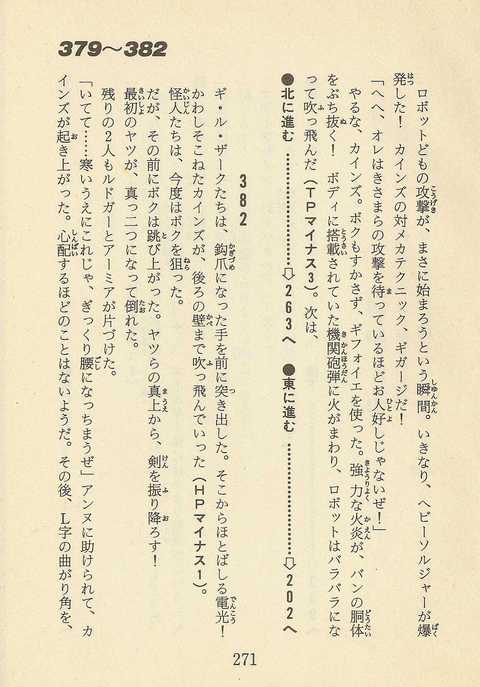 379〜382
ロボットどもの攻撃が、まさに始まろうという瞬間。いきなり、ヘビーソルジャーが爆
発した！　カインズの対メカテクニック、ギガージだ！
「へへ、オレはきさまらの攻撃を待っているほどお人好しじゃないぜ！」
やるな、カインズ。ボクもすかさず、ギフォイエを使った。強力な火炎が、バンの胴体
をぶち抜く！　ボディに搭載されていた機関砲弾に火がまわり、ロボットはバラバラにな
って吹っ飛んだ（TPマイナス3）。次は、
●北に進む …………………⇨263へ　●東に進む …………………⇨202へ
382
ギ・ル・ザークたちは、鉤爪になった手を前に突き出した。そこからほとばしる電光！
かわしそこねたカインズが、後ろの壁まで吹っ飛んでいった（HPマイナス1）。
怪人たちは、今度はボクを狙った。
だが、その前にボクは跳び上がった。ヤツらの真上から、剣を振り降ろす！
最初のヤツが、真っ二つになって倒れた。
残りの2人もルドガーとアーミアが片づけた。
「いてて……寒いうえにこれじゃ、ぎっくり腰になっちまうぜ」アンヌに助けられて、カ
インズが起き上がった。心配するほどのことはないようだ。その後、L字の曲がり角を、
271